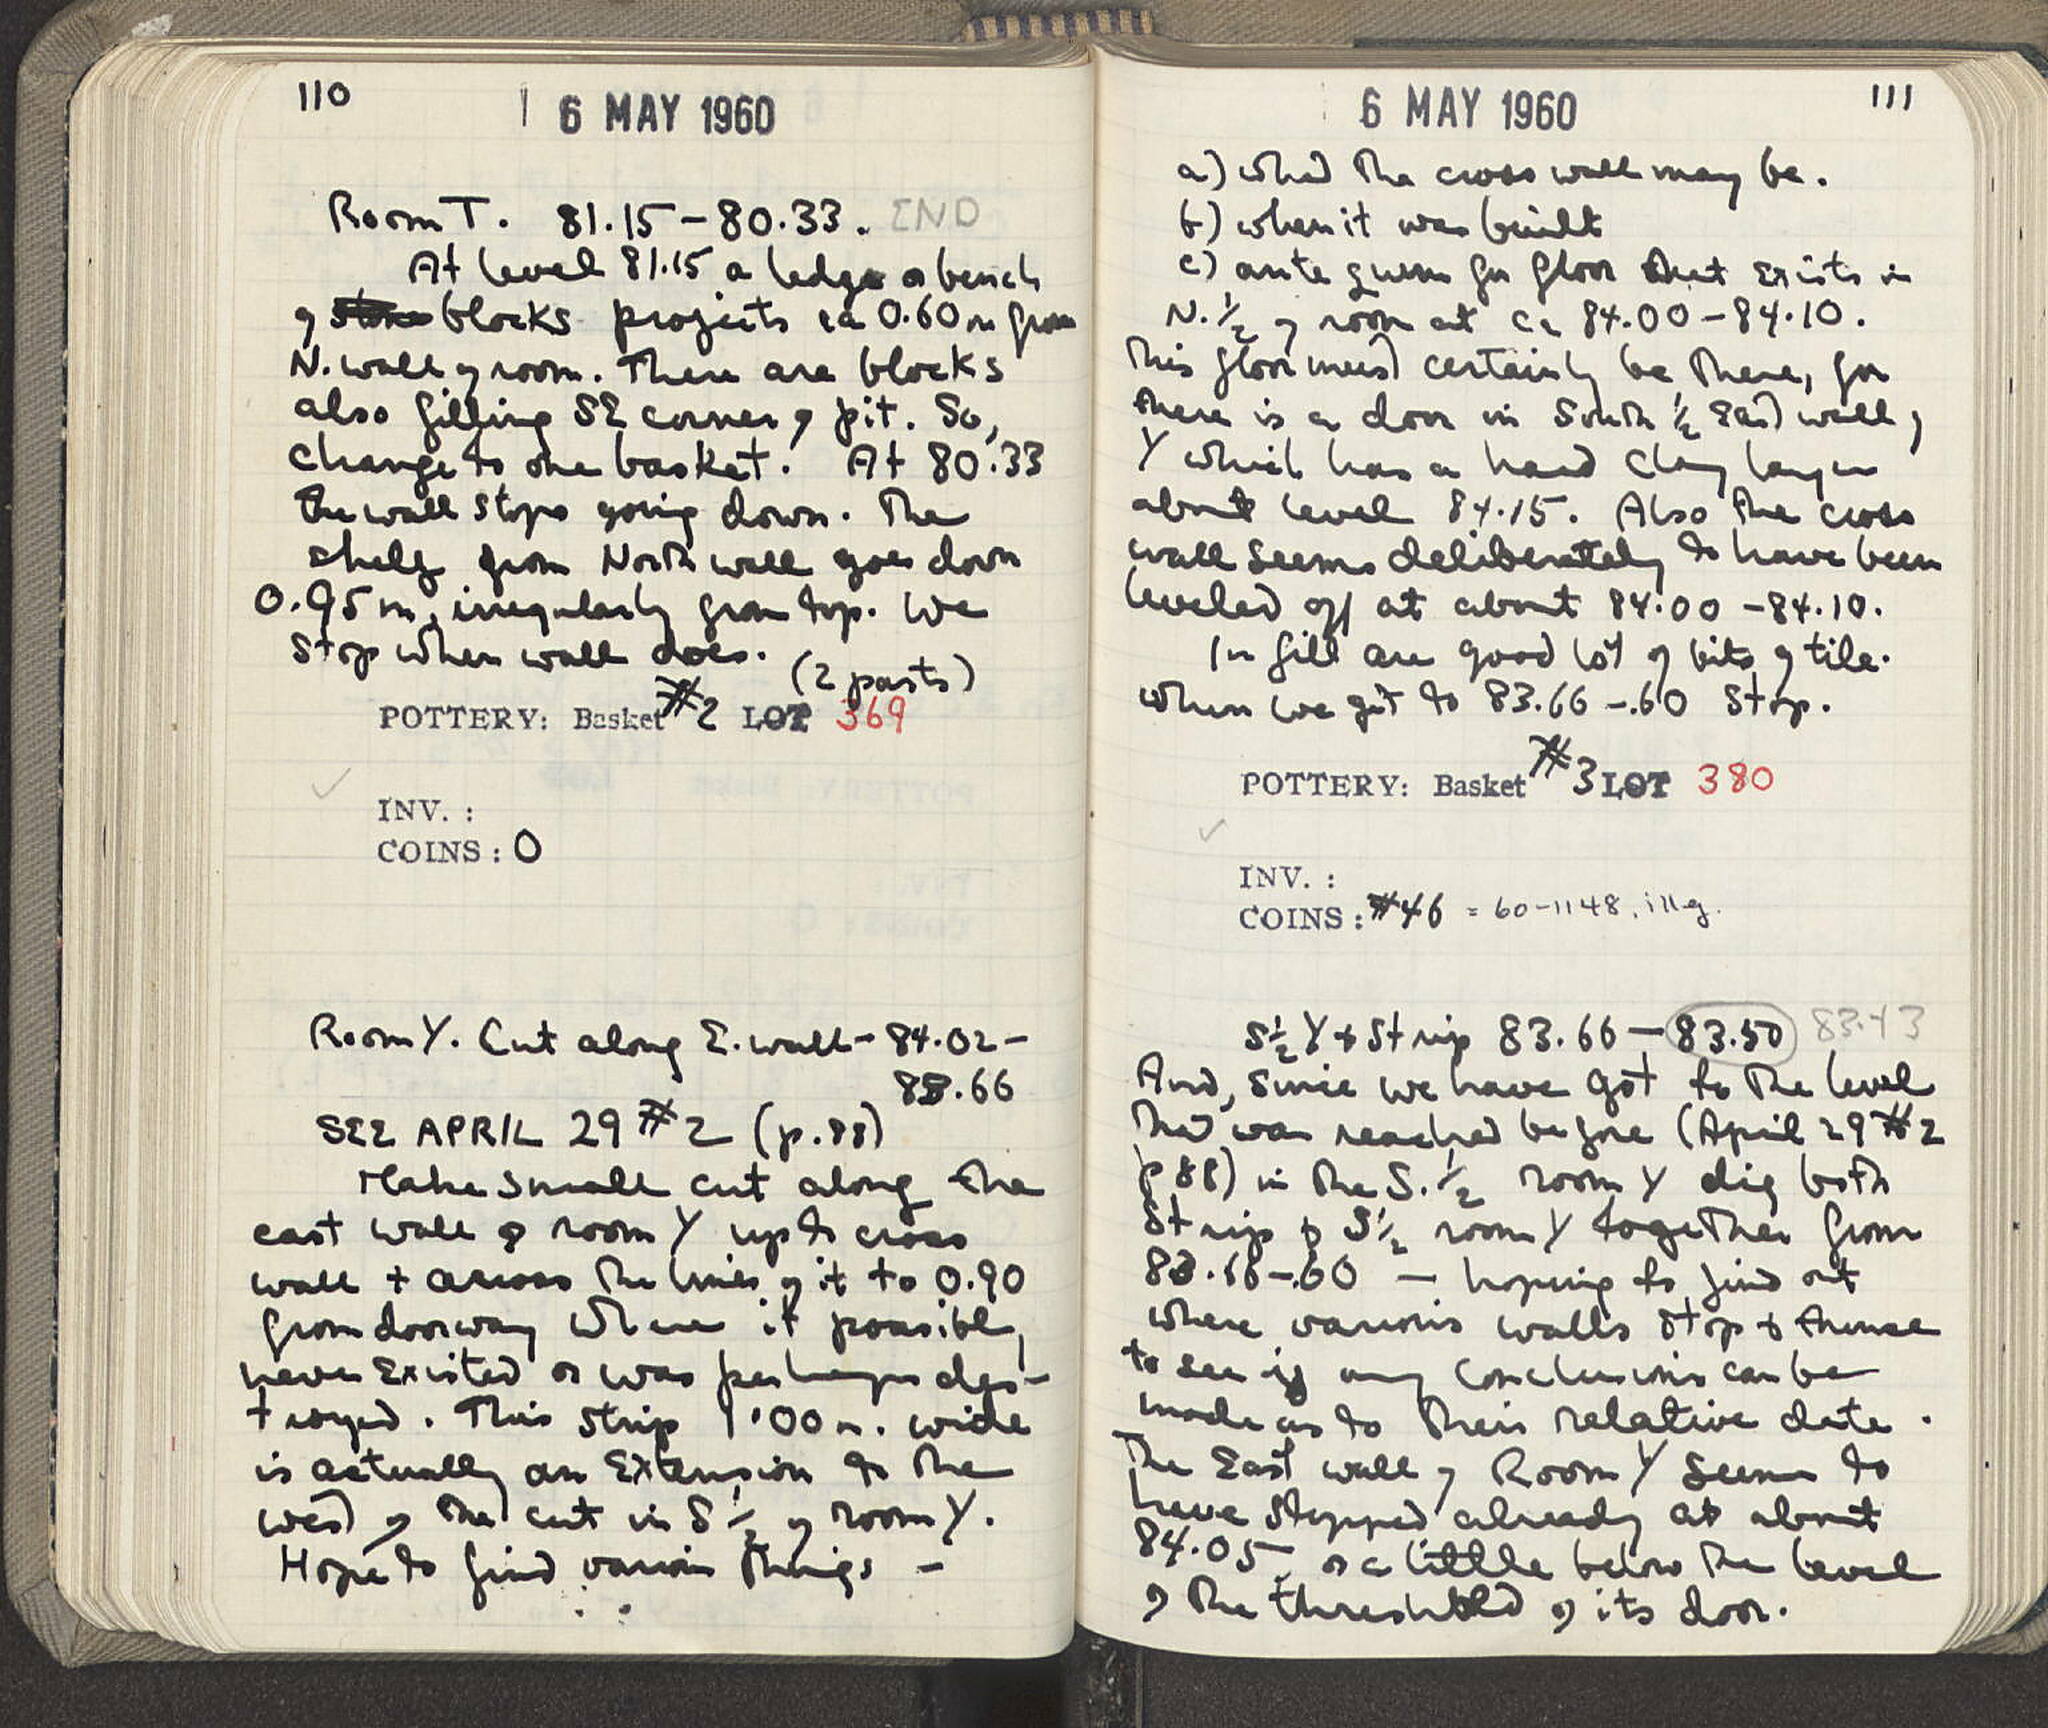 110
6 MAY 1960
Room T. 81.15 – 80.33. END
At level 81.15 a ledge or bench
of blocks projects ca 0.60 m from
N. wall of room. There are blocks
also filling SE corner of pit. So,
change to one basket. At 80.33
the wall stops going down. The
shelf from North wall goes down
0.95 m, irregularly from top. We
stop when wall does.
(2 parts)
POTTERY: Basket #2 LOT 369
INV. :
COINS: 0
Room Y. Cut along E. wall – 84.02 –
83.66
SEE APRIL 29 #2 (p.88)
Make small cut along the
east wall of room Y up to cross
wall + across the line of it to 0.90
from doorway where it possibly
never existed or was perhaps des-
troyed. This strip 1.00 m. wide
is actually an extension to the
west of the cut in S ½ of room Y.
Hope to find various things –
111
6 MAY 1960
a) what the cross wall may be.
b) when it was built
c) ante quem for floor that exists in
N. ½ of room at ca 84.00 – 84.10.
This floor must certainly be there, for
there is a door in South ½ East wall of
Y which has a hard clay layer
about level 84.15. Also the cross
wall seems deliberately to have been
leveled off at about 84.00 – 84.10.
In fill are good lot of bits of tile.
When we get to 83.66 – .60 stop.
POTTERY: Basket #3 LOT 380
INV. :
COINS: #46 = 60-1148, illeg.
S ½ Y + Strip 83.66 – 83.50 83.43
And, since we have got to the level
that was reached before (April 29 #2
p 88) in the S. ½ room Y dig both
Strip + S ½ room Y together from
83.66 – .60 – hoping to find out
where various walls stop + thence
to see if any conclusions can be
made as to their relative date.
The East wall of Room Y seems to
have stopped already at about
84.05, or a little below the level
of the threshold of its door.